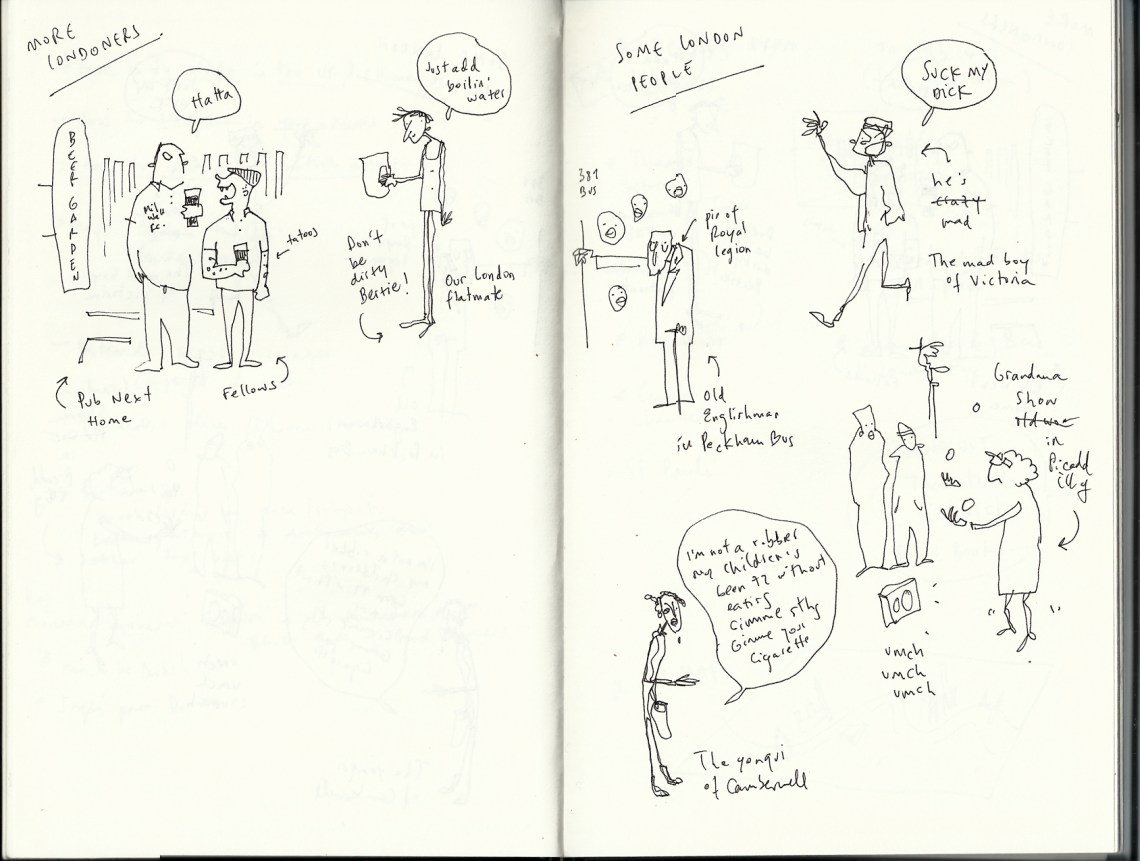 MORE
LONDONERS
HaHa
BEER GARDEN
Mill
Wall
FC.
tatoos
Pub Next
Home
Fellows
Just add
boilin'
water
Don't
be
dirty
Bertie!
Our London
flatmate
SOME LONDON
PEOPLE
SUCK MY
DICK
he's
crazy
mad
The mad boy
of Victoria
381
BUS
pin of
Royal
legion
Old
Englishman
in Peckham Bus
Grandma
Show
in
Picadd
illy
umch
umch
umch
I'm not a robber
my children's
been 72 without
eating
Gimme sthg
Gimme your
cigarette
The yonqui
of Camberwell